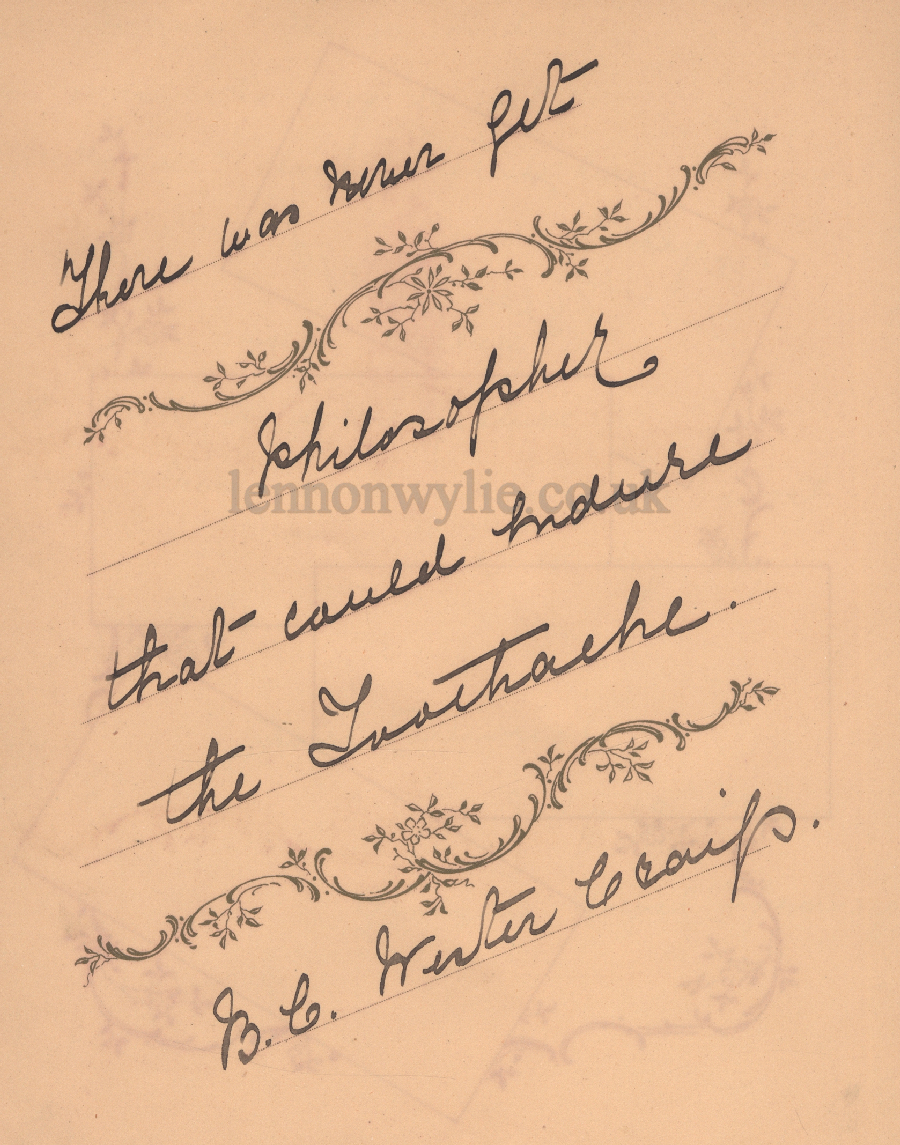 There was never yet
philosopher
lennonwylie.co.uk
that could endure
the Toothache.
B. C. Wester Craigs.